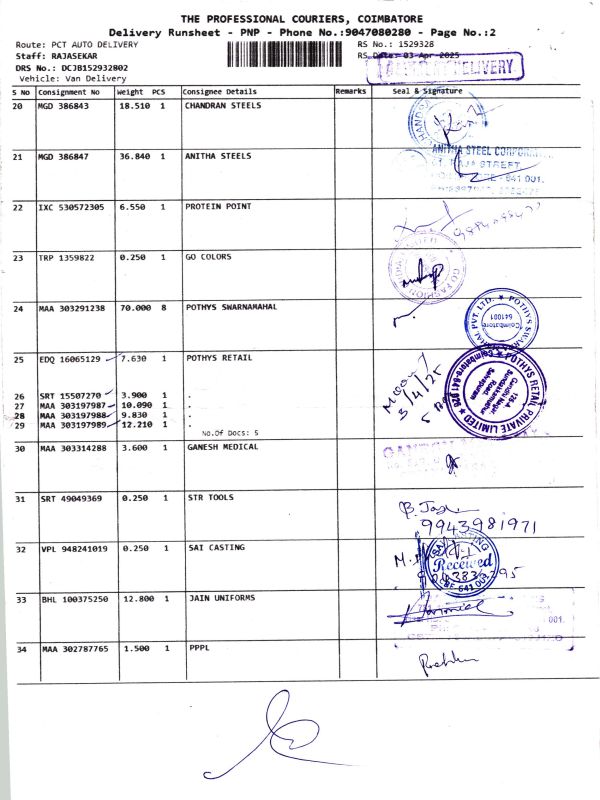 THE PROFESSIONAL COURIERS, COIMBATORE
Delivery Runsheet - PNP - Phone No.:9047080280 - Page No.:2
Route: PCT AUTO DELIVERY
RS No.: 1529328
Staff: RAJASEKAR
RS Date: 03-Apr-2025
DELIVERY
DRS No.: DCJB152932802
Vehicle: Van Delivery
S No Consignment No Weight PCS Consignee Details Remarks Seal & Signature
20 MGD 386843 18.510 1 CHANDRAN STEELS
21 MGD 386847 36.840 1 ANITHA STEELS
ANITHA STEEL CORPORATION
STREET
641 001.
22 IXC 530572305 6.550 1 PROTEIN POINT
23 TRP 1359822 0.250 1 GO COLORS
24 MAA 303291238 70.000 8 POTHYS SWARNAMAHAL
POTHYS SWARNAMAHAL PVT. LTD.
Coimbatore
641001
25 EDQ 16065129 7.630 1 POTHYS RETAIL
3/4/25
POTHYS RETAIL PRIVATE LIMITED
Coimbatore-641
26 SRT 15507270 3.900 1 .
27 MAA 303197987 10.090 1 .
28 MAA 303197988 9.830 1 .
29 MAA 303197989 12.210 1 .
No.Of Docs: 5
30 MAA 303314288 3.600 1 GANESH MEDICAL
31 SRT 49049369 0.250 1 STR TOOLS
9943981971
32 VPL 948241019 0.250 1 SAI CASTING
SAI CASTING
Received
CBE 641 001
33 BHL 100375250 12.800 1 JAIN UNIFORMS
001.
34 MAA 302787765 1.500 1 PPPL